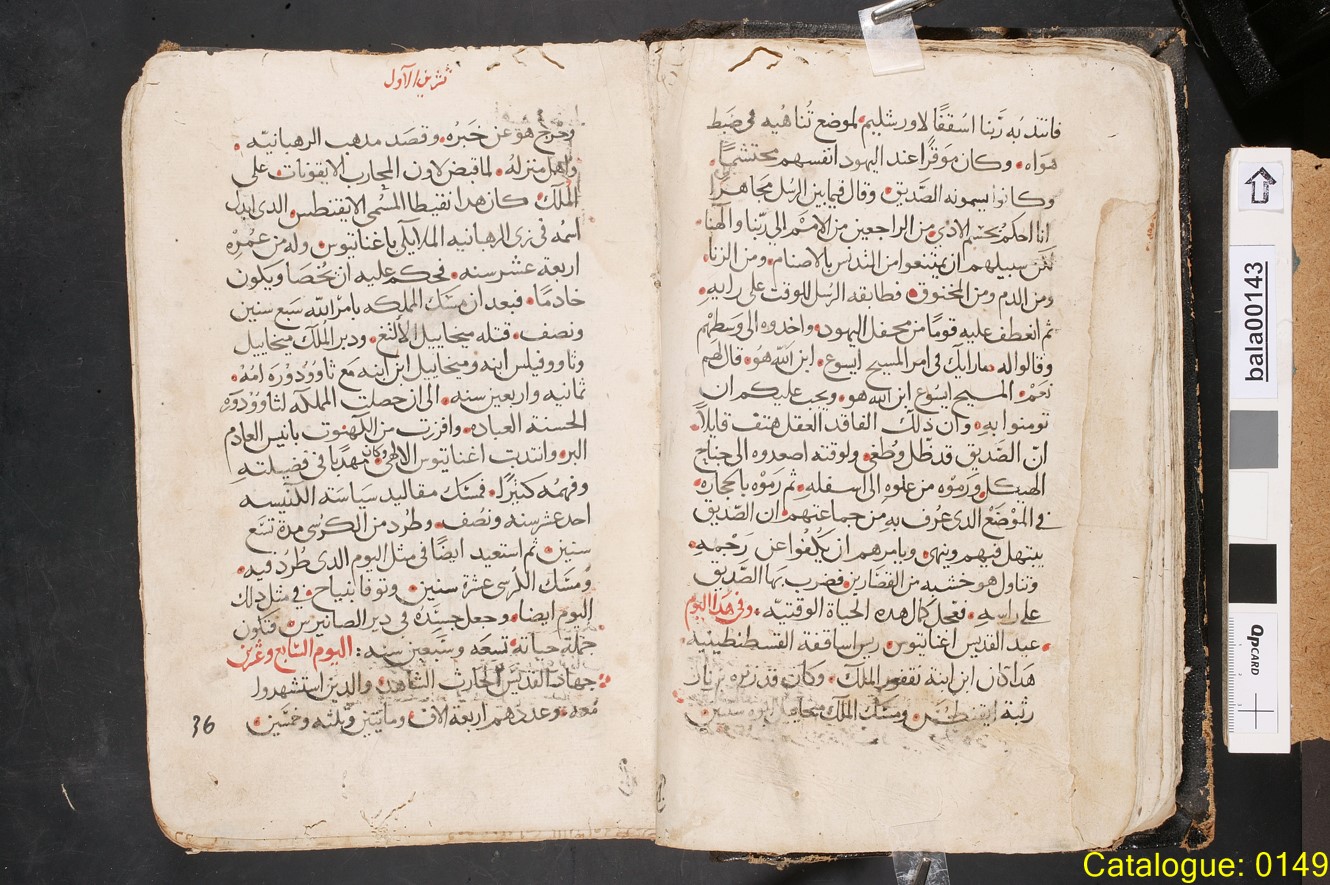 فانتدبه ربنا اسقفًا لاورشليم لموضع تناهيه في ضبط
هواه وكان موقرًا عند اليهود انفسهم محتشمًا
وكانوا يسمونه الصديق وقال فيما بين الرسل مجاهرًا
انا احكم بحسم الاذي من الراجعين من الامم الي ربنا والهنا
لكن سبيلهم ان يمتنعوا من التدنس بالاصنام ومن الزنا
ومن الدم ومن المخنوق فطابقه الرسل للوقت على رايه
ثم انعطف عليه قومًا من محفل اليهود واخدوه الى وسطهم
وقالوا له ما رايك في امر المسيح ايسوع ابن الله هو قال لهم
نعم المسيح ايسوع ابن الله هو ويجب عليكم ان
تومنوا به وان ذلك الفاقد العقل هتف قايلاً
ان الصديق قد ظل وطغى ولوقته اصعدوه الى جناح
الهيكل ورموه من علوه الى اسفله ثم رموه بالحجاره
في الموضع الدى عرف به من جماعتهم ان الصديق
يبتهل فيهم وينهى ويامرهم ان يكفوا عن رجمه
وتناول هو خشبه من القصارين فضرب بها الصديق
على راسه فعجل كمال هده الحياة الوقتيه وفي هدا اليوم
عيد القديس اغناتيوس ريس اساقفة القسطنطينيه
هدا كان ابن ابنة نقفور الملك وكان قد زينه بزنار
رتبة ومسك الملك ميخاييل ابوه سنين
تشرين الاول
وخرج هو عن خبره وقصد مدهب الرهبانيه
واهل منزله لما قبض لاون المحارب الايقونات على
الملك كان هدا نقيطا المسمى الايقنطس الدى ابدل
اسمه في زى الرهبانيه الملايكي باغناتيوس وله من عمره
اربعة عشر سنه فحكم عليه ان يخصا ويكون
خادمًا فبعد ان مسك المملكه بامر الله سبع سنين
ونصف قتله ميخاييل الالثغ ودبر الملك ميخاييل
وثاووفيلس ابنه وميخاييل ابن ابنه مع ثاوودوره امه
ثمانيه واربعين سنه الى ان حصلت المملكه لثاوودوره
الحسنة العباده وافرزت من الكهنوت يانيس العادم
البر وانتدبت اغناتيوس الالهي وكان مهديًا في فضيلته
وفهمه كثيرًا فمسك مقاليد سياسة الكنيسه
احد عشر سنه ونصف وطرد من الكرسي مدة تسع
سنين ثم استعيد ايضًا في مثل اليوم الدى طرد فيه
ومسك الكرسى عشرة سنين وتوفا بنياح في مثل دلك
اليوم ايضا وجعل جسده في دير الصانيرس فتكون
جملة حياته تسعه وسبعين سنه اليوم الرابع وعشرين
جهاد القديس الحارث الشاهد والدين استشهدوا
معه وعددهم اربعة الاف ومايتين وثلثه وخمسين
36
bala00143
QPCARD
Catalogue: 0149